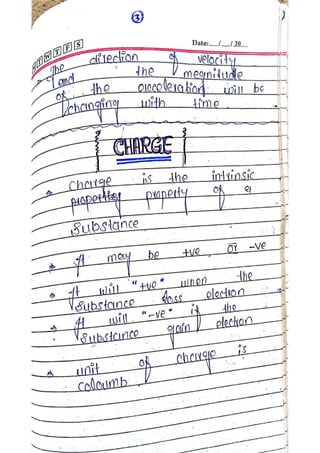 3
NOTES
Date: __/__/20__
The direction of velocity
and the megnitude
of the acceleration will be
changing with time
CHARGE
Charge is the intrinsic
property property of a
Substance
It may be +ve or -ve
It will "+ve" when the
Substance loss electron
It will "-ve" if the
Substance gain electron
unit of charge is
coloumb